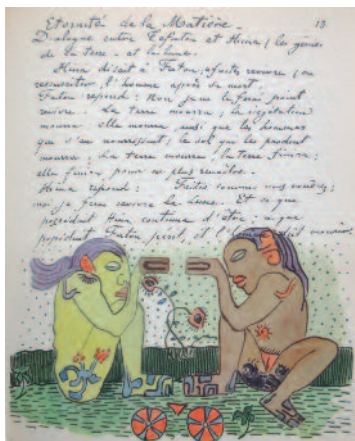 Eternité de la Matière_ 13
Dialogue entre Tefatou et Hina (les génies
de la terre - et la lune.
Hina disait à Fatou, faites revivre (ou
ressusciter l'homme après sa mort.
Fatou répond : Non je ne le ferai point
revivre. La terre mourra ; la végétation
mourra elle mourra, ainsi que les hommes
qui s'en nourrissent ; le sol qui les produit
mourra ; La terre mourra, la terre finira ;
elle finira pour ne plus renaître.
Hina répond : Faites comme vous voudrez,
moi je ferai revivre la Lune. Et ce que
possédait Hina continua d'être ; ce que
possédait Fatou périt, et l'homme dut mourir.